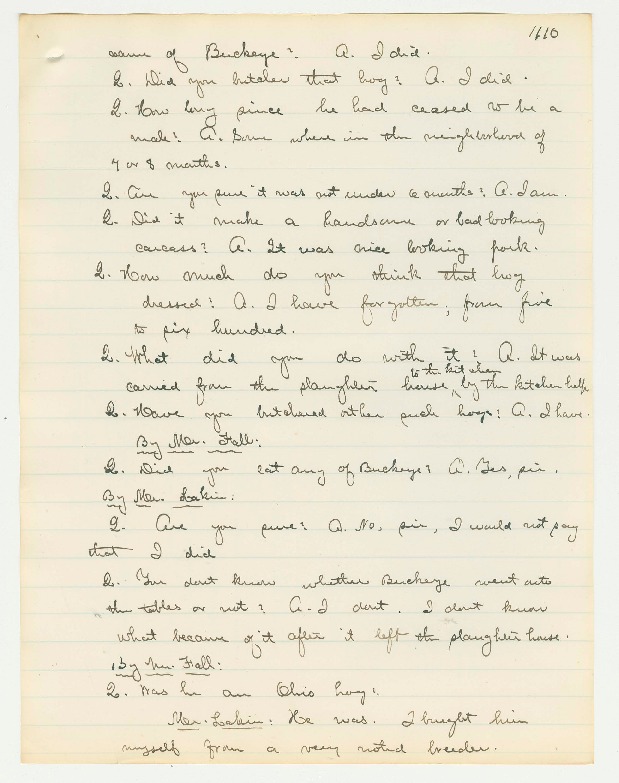 1110
same of Buckeye? A. I did.
Q. Did you butcher that hog? A. I did.
Q. How long since he had ceased to be a
male? A. Some where in the neighborhood of
7 or 8 months.
Q. Are you sure it was not under 6 months? A. I am.
Q. Did it make a handsome or bad looking
carcass? A. It was nice looking pork.
Q. How much do you think that hog
dressed? A. I have forgotten, from five
to six hundred.
Q. What did you do with it? A. It was
to the kitchen
carried from the slaughter house, by the kitchen help
Q. Have you butchered other such hogs? A. I have.
By Mr. Fall:
Q. Did you eat any of Buckeye? A. Yes, sir.
By Mr. Lakin:
Q. Are you sure? A. No, sir, I would not say
that I did
Q. You dont know whether Buckeye went onto
the tables or not? A. I dont. I dont know
what became of it after it left the slaughter house.
By Mr. Fall:
Q. Was he an Ohio hog?
Mr. Lakin: He was. I bought him
myself from a very noted breeder.